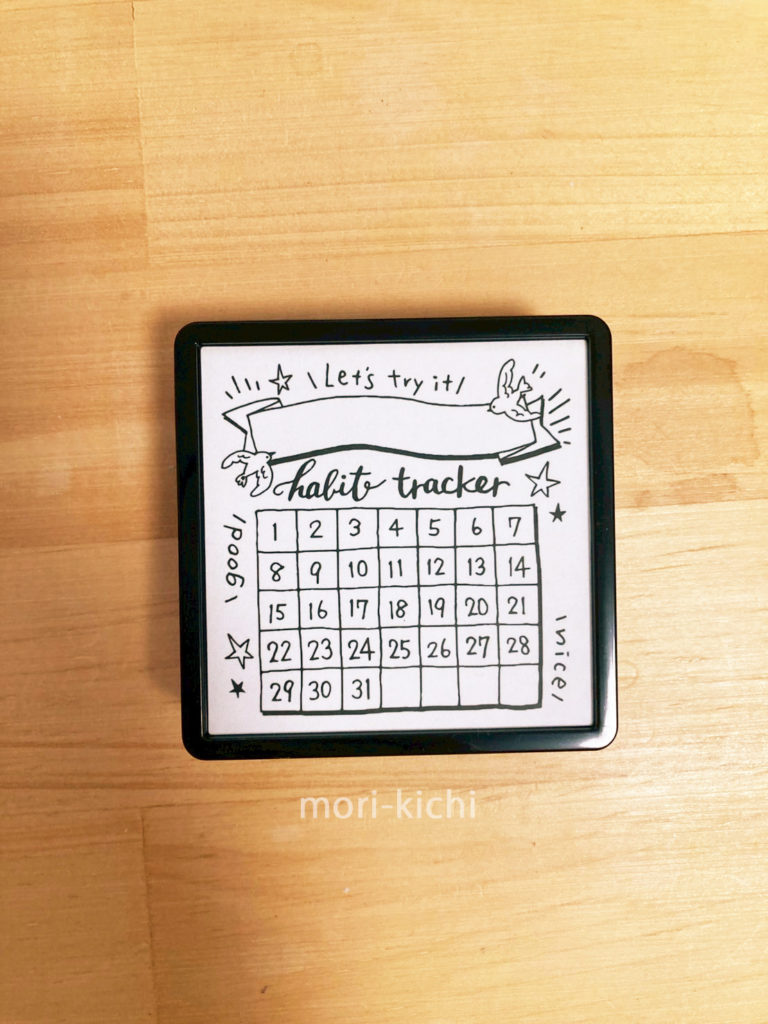 \Let's try it/
habit tracker
1 2 3 4 5 6 7
8 9 10 11 12 13 14
15 16 17 18 19 20 21
22 23 24 25 26 27 28
29 30 31
/good\
\nice/
mori-kichi